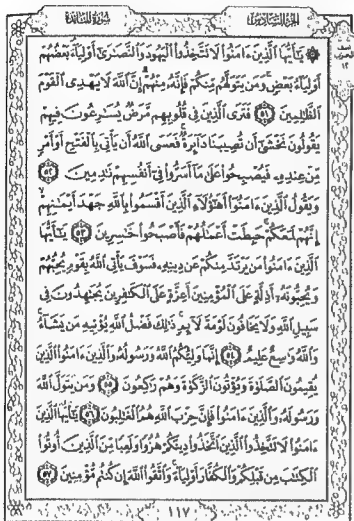 سُورَةُ المَائِدَةِ الجُزْءُ السَّادِسُ
۞ يَٰٓأَيُّهَا ٱلَّذِينَ ءَامَنُوا۟ لَا تَتَّخِذُوا۟ ٱلْيَهُودَ وَٱلنَّصَٰرَىٰٓ أَوْلِيَآءَ بَعْضُهُمْ
أَوْلِيَآءُ بَعْضٍ وَمَن يَتَوَلَّهُم مِّنكُمْ فَإِنَّهُۥ مِنْهُمْ إِنَّ ٱللَّهَ لَا يَهْدِى ٱلْقَوْمَ
ٱلظَّٰلِمِينَ ٥١ فَتَرَى ٱلَّذِينَ فِى قُلُوبِهِم مَّرَضٌ يُسَٰرِعُونَ فِيهِمْ
يَقُولُونَ نَخْشَىٰٓ أَن تُصِيبَنَا دَآئِرَةٌ فَعَسَى ٱللَّهُ أَن يَأْتِىَ بِٱلْفَتْحِ أَوْ أَمْرٍ
مِّنْ عِندِهِۦ فَيُصْبِحُوا۟ عَلَىٰ مَآ أَسَرُّوا۟ فِىٓ أَنفُسِهِمْ نَٰدِمِينَ ٥٢
وَيَقُولُ ٱلَّذِينَ ءَامَنُوٓا۟ أَهَٰٓؤُلَآءِ ٱلَّذِينَ أَقْسَمُوا۟ بِٱللَّهِ جَهْدَ أَيْمَٰنِهِمْ
إِنَّهُمْ لَمَعَكُمْ حَبِطَتْ أَعْمَٰلُهُمْ فَأَصْبَحُوا۟ خَٰسِرِينَ ٥٣ يَٰٓأَيُّهَا
ٱلَّذِينَ ءَامَنُوا۟ مَن يَرْتَدَّ مِنكُمْ عَن دِينِهِۦ فَسَوْفَ يَأْتِى ٱللَّهُ بِقَوْمٍ يُحِبُّهُمْ
وَيُحِبُّونَهُۥٓ أَذِلَّةٍ عَلَى ٱلْمُؤْمِنِينَ أَعِزَّةٍ عَلَى ٱلْكَٰفِرِينَ يُجَٰهِدُونَ فِى
سَبِيلِ ٱللَّهِ وَلَا يَخَافُونَ لَوْمَةَ لَآئِمٍ ذَٰلِكَ فَضْلُ ٱللَّهِ يُؤْتِيهِ مَن يَشَآءُ
وَٱللَّهُ وَٰسِعٌ عَلِيمٌ ٥٤ إِنَّمَا وَلِيُّكُمُ ٱللَّهُ وَرَسُولُهُۥ وَٱلَّذِينَ ءَامَنُوا۟ ٱلَّذِينَ
يُقِيمُونَ ٱلصَّلَوٰةَ وَيُؤْتُونَ ٱلزَّكَوٰةَ وَهُمْ رَٰكِعُونَ ٥٥ وَمَن يَتَوَلَّ ٱللَّهَ
وَرَسُولَهُۥ وَٱلَّذِينَ ءَامَنُوا۟ فَإِنَّ حِزْبَ ٱللَّهِ هُمُ ٱلْغَٰلِبُونَ ٥٦ يَٰٓأَيُّهَا ٱلَّذِينَ
ءَامَنُوا۟ لَا تَتَّخِذُوا۟ ٱلَّذِينَ ٱتَّخَذُوا۟ دِينَكُمْ هُزُوًا وَلَعِبًا مِّنَ ٱلَّذِينَ أُوتُوا۟
ٱلْكِتَٰبَ مِن قَبْلِكُمْ وَٱلْكُفَّارَ أَوْلِيَآءَ وَٱتَّقُوا۟ ٱللَّهَ إِن كُنتُم مُّؤْمِنِينَ ٥٧
١١٧